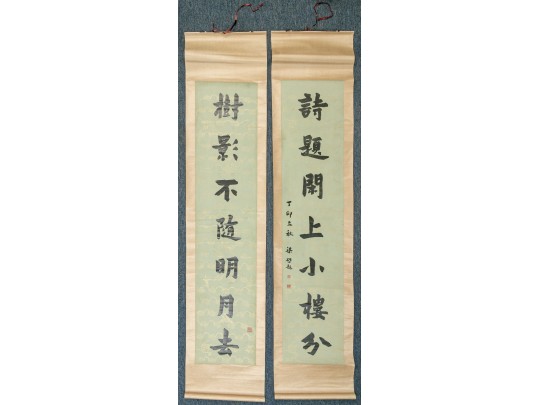 樹影不隨明月去
詩題閑上小樓分
丁卯秋 梁啟超